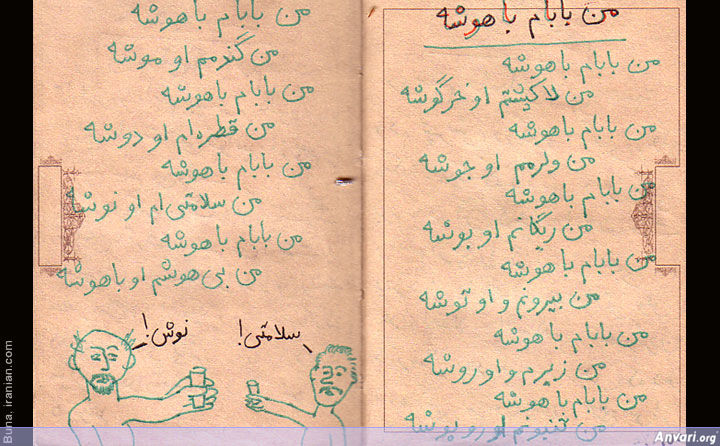 من بابام باهوشه
من بابام باهوشه
من لاکپشتم او خرگوشه
من بابام باهوشه
من ولرمم او جوشه
من بابام باهوشه
من ریگانم او بوشه
من بابام باهوشه
من بیرونم و او توشه
من بابام باهوشه
من زیرم و او روشه
من بابام باهوشه
من او
من بابام باهوشه
من گندمم او موشه
من بابام باهوشه
من قطره‌ام او دوشه
من بابام باهوشه
من سلامتی‌ام او نوشه
من بابام باهوشه
من بی‌هوشم او باهوشه
سلامتی!
نوش!
Buna. iranian.com
Anvari.org